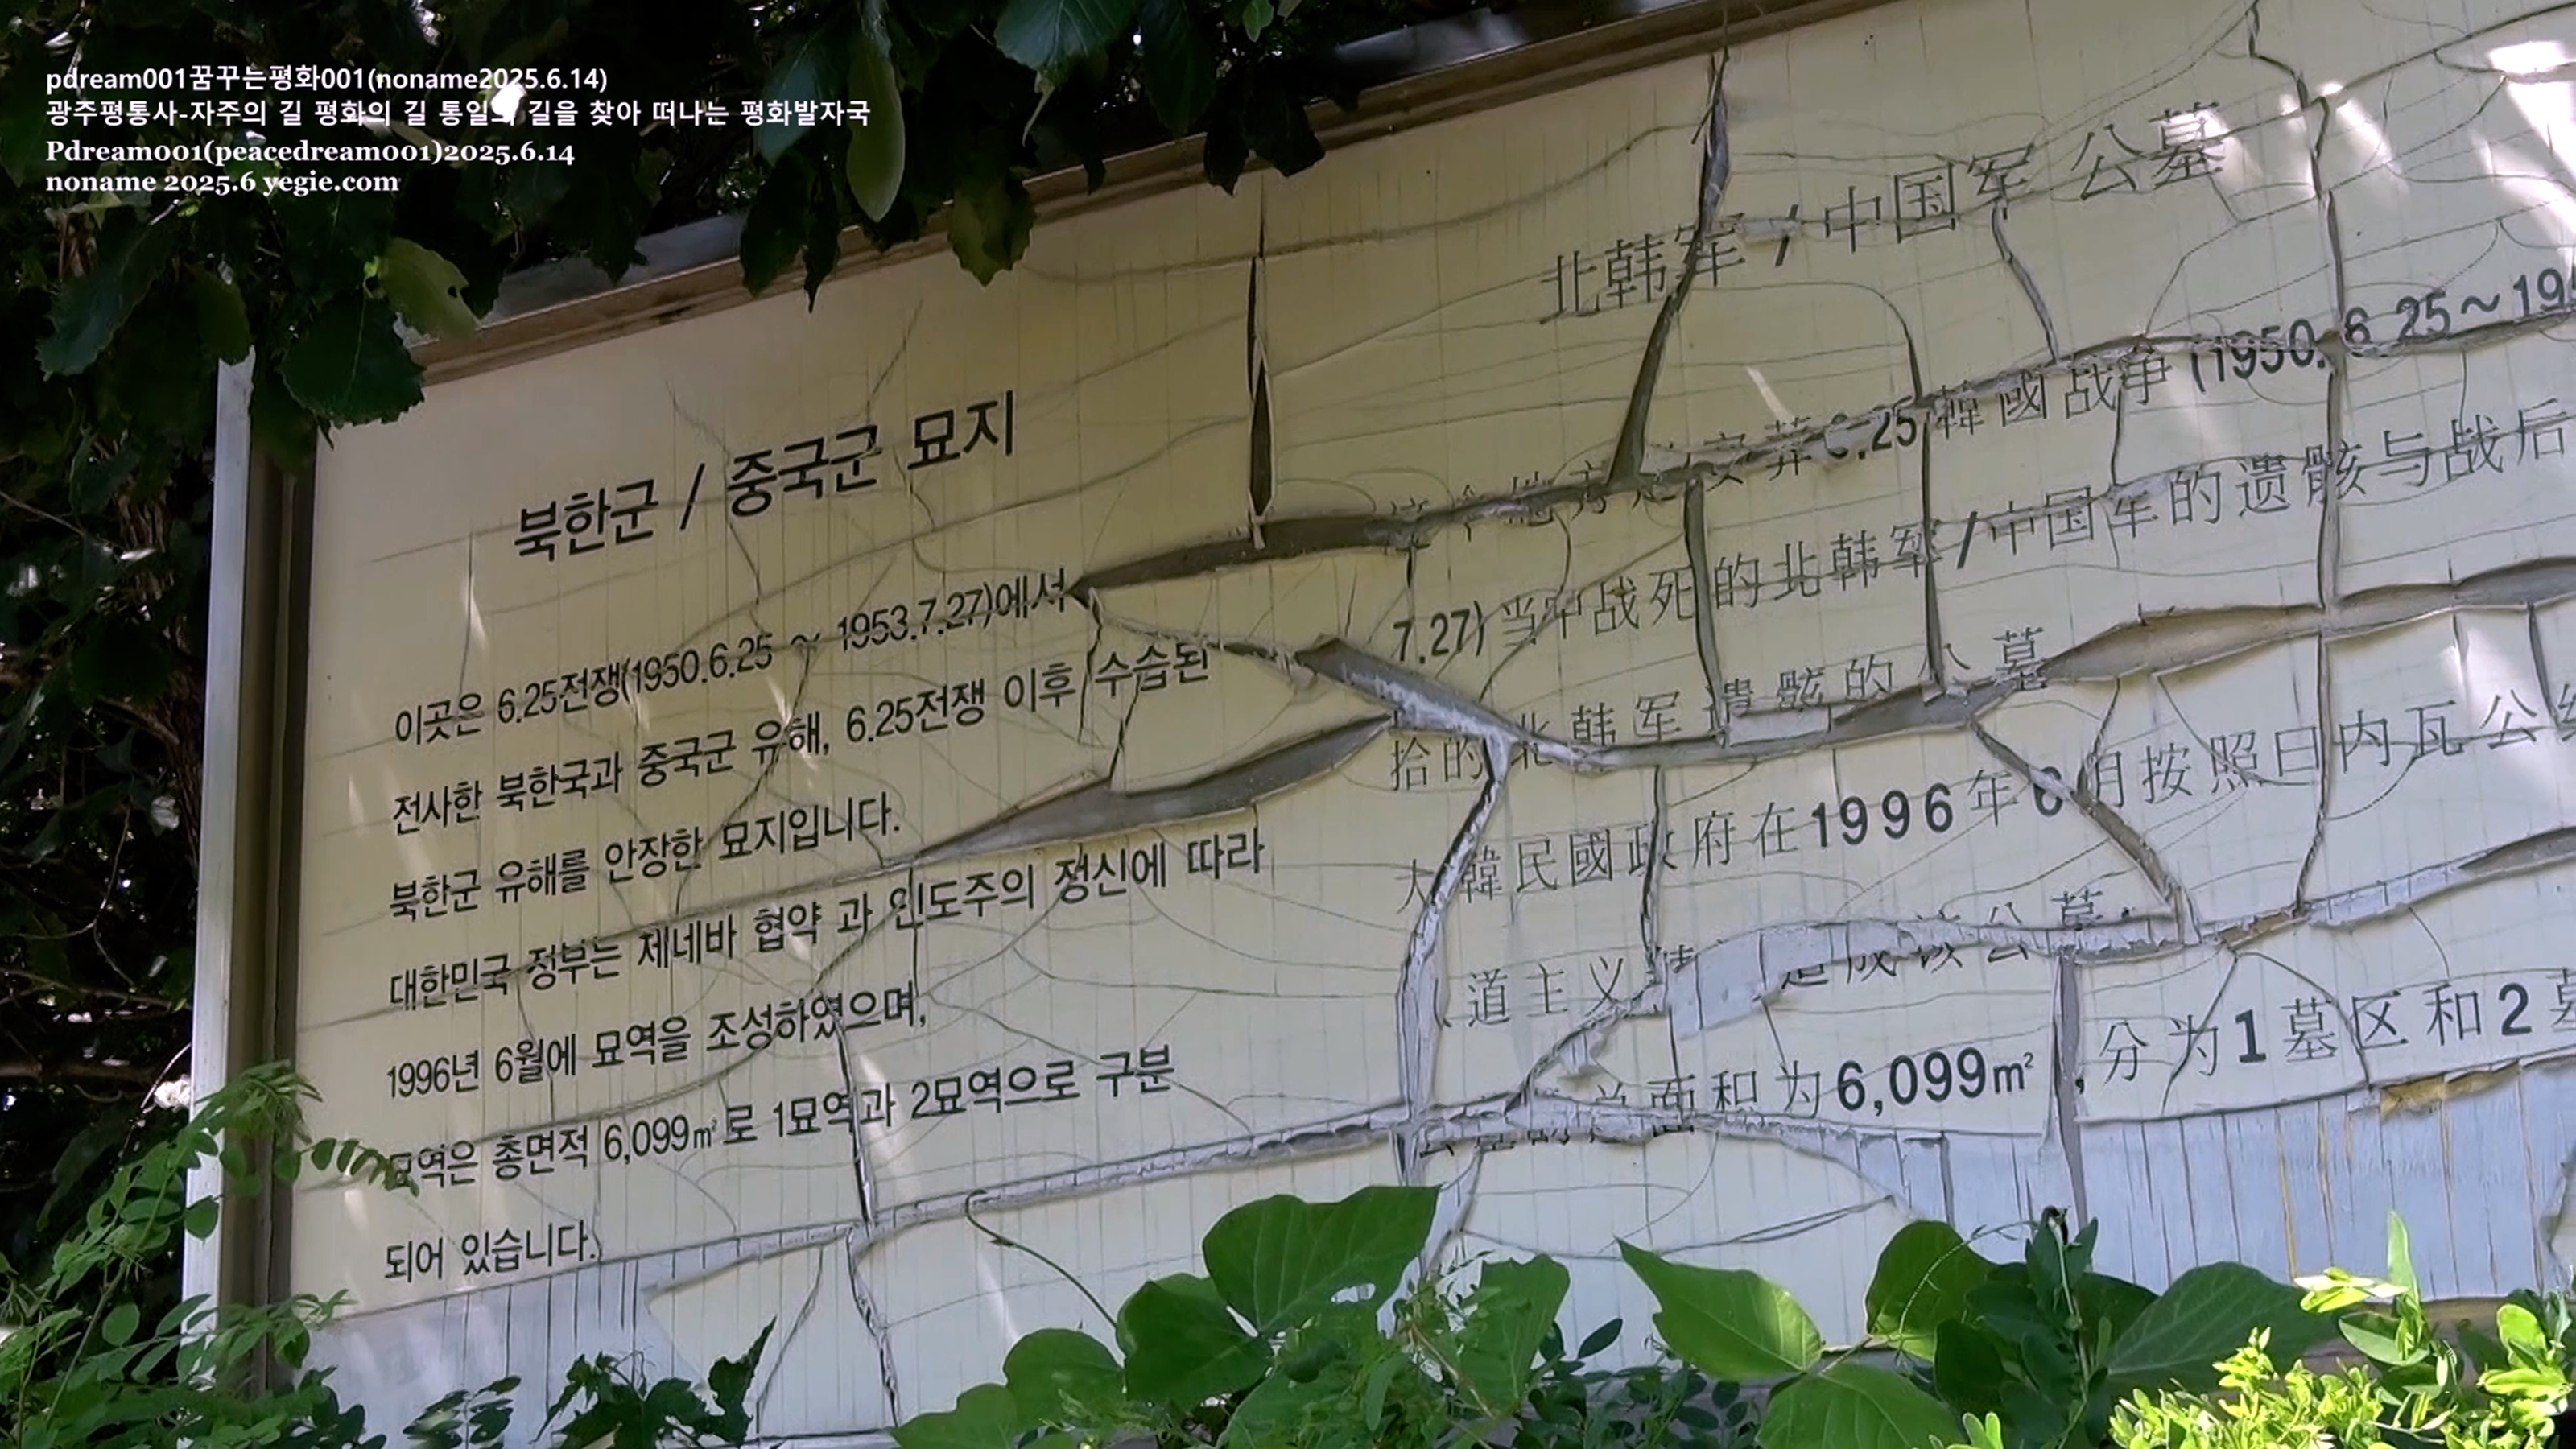 pdream001꿈꾸는평화001(noname2025.6.14)
광주평통사-자주의 길 평화의 길 통일의 길을 찾아 떠나는 평화발자국
Pdream001(peacedream001)2025.6.14
noname 2025.6 yegie.com
북한군 / 중국군 묘지
이곳은 6.25전쟁(1950.6.25 ~ 1953.7.27)에서
전사한 북한국과 중국군 유해, 6.25전쟁 이후 수습된
북한군 유해를 안장한 묘지입니다.
대한민국 정부는 제네바 협약 과 인도주의 정신에 따라
1996년 6월에 묘역을 조성하였으며,
묘역은 총면적 6,099㎡로 1묘역과 2묘역으로 구분
되어 있습니다.
北韩军 / 中国军 公墓
安葬6.25韓國战争 (1950. 6 25~19
7.27) 当中战死的北韩军/中国军的遗骸与战后
拾的北韩军遗骸的公墓
大韓民國政府在1996年6月按照日内瓦公约
道主义 造成该公墓
总面积为6,099㎡, 分为1墓区和2墓